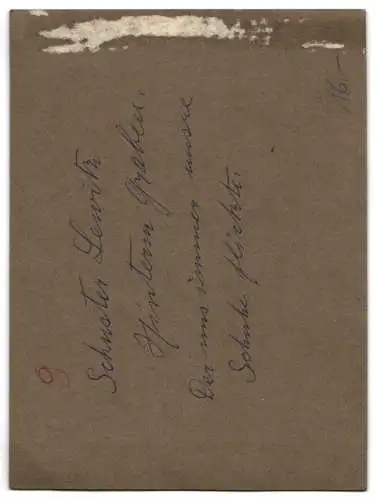 Schuster Lewitz
Hinterm Graben.
Der uns immer unsere
Schuhe flickte.
9
16.-